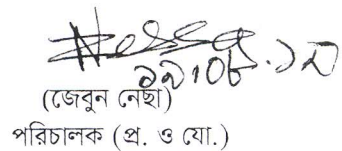 ১৯.০৮.১৯
(জেবুন নেছা)
পরিচালক (প্র. ও যো.)